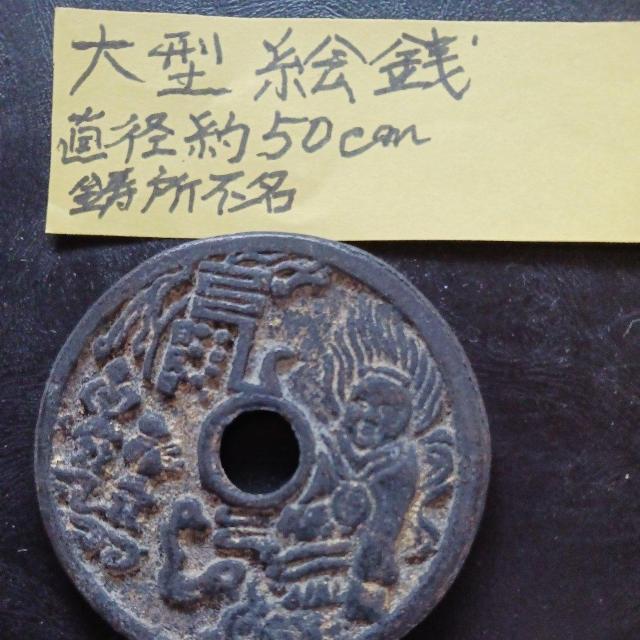 大型絵銭
直径約50cm
鋳所不名